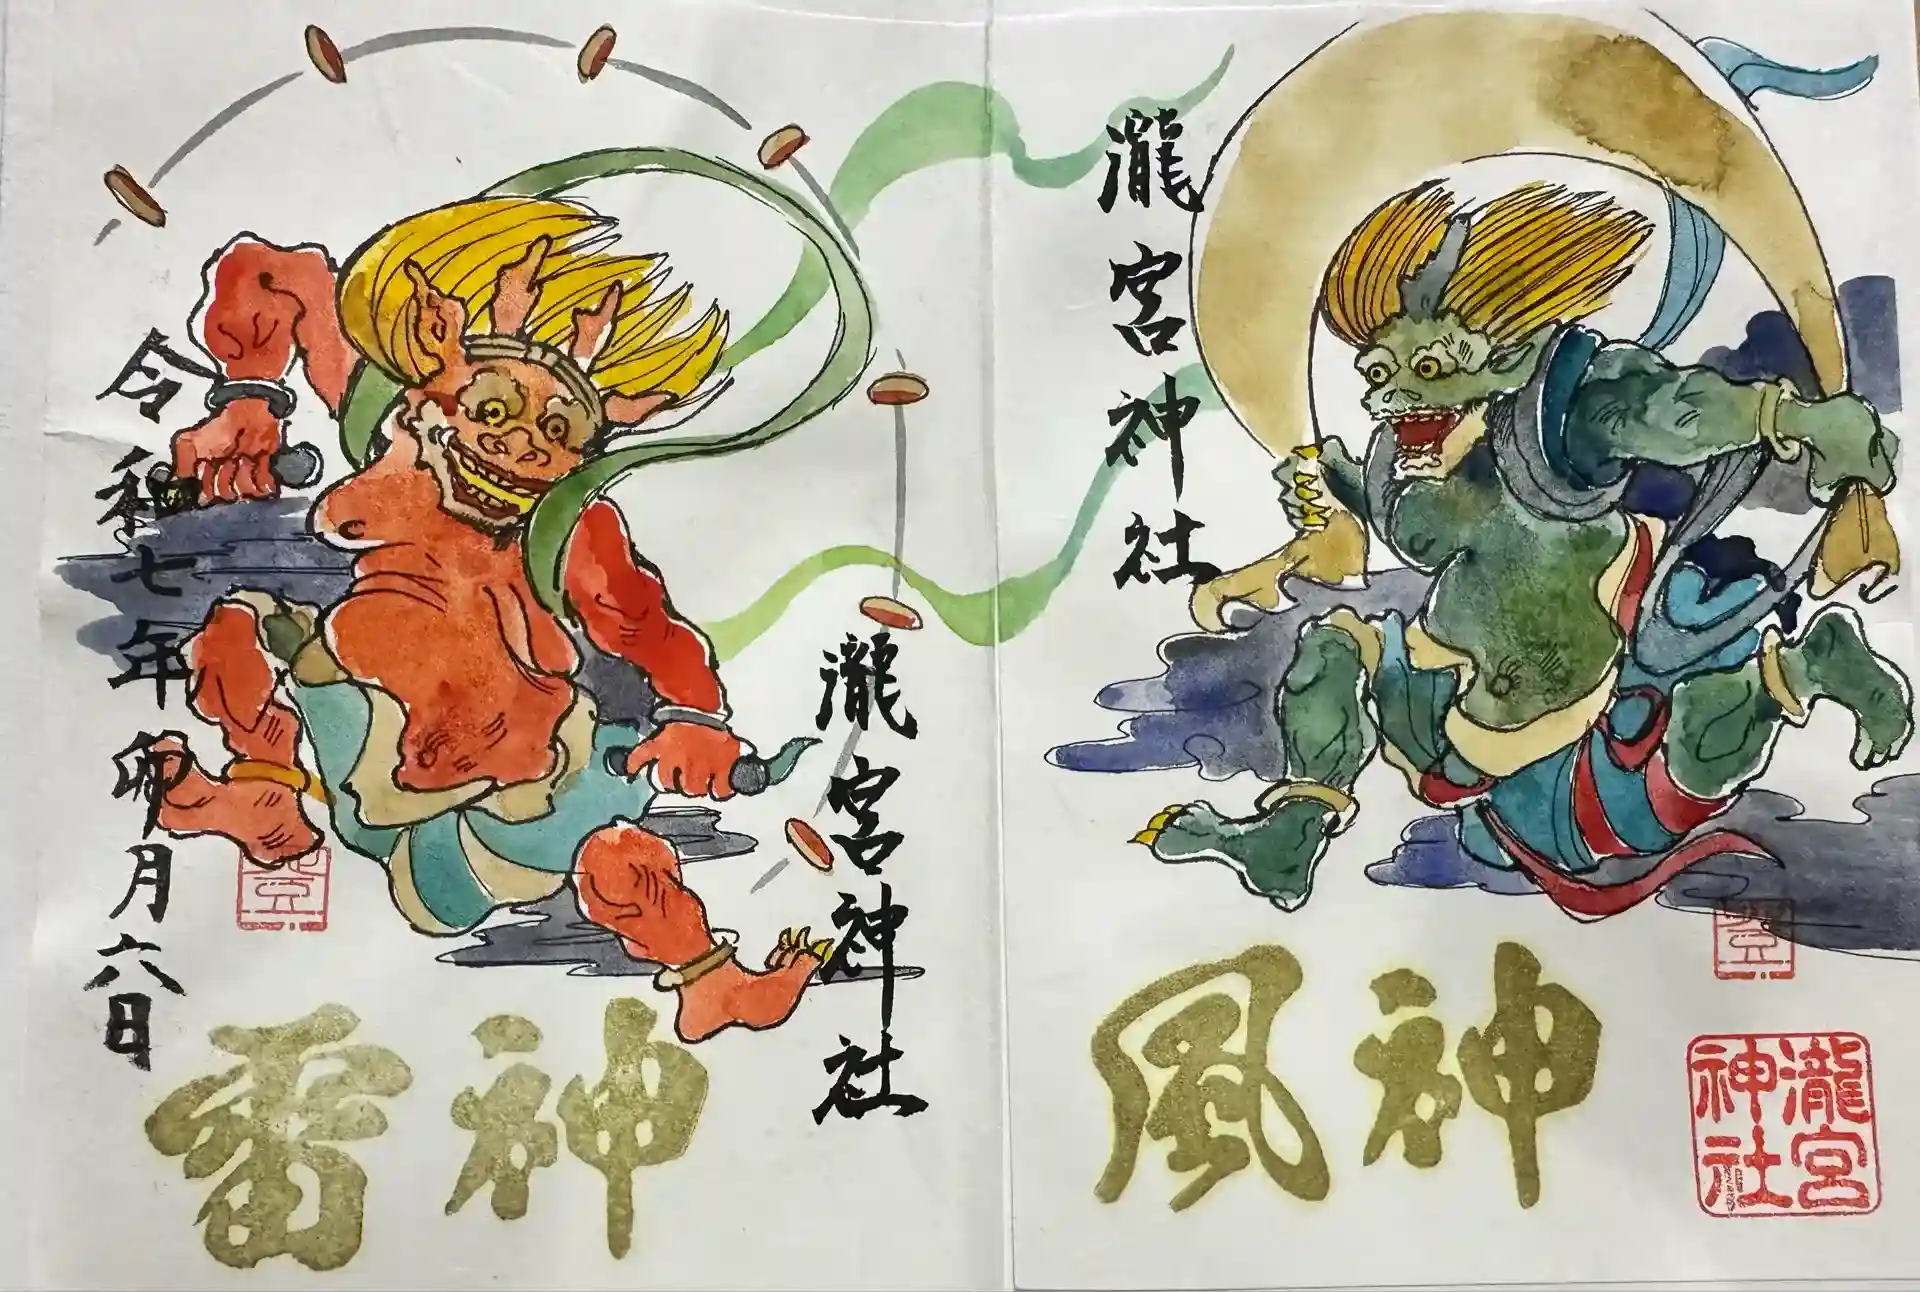 瀧宮神社
風神
瀧宮神社
瀧宮神社
雷神
令和七年卯月六日